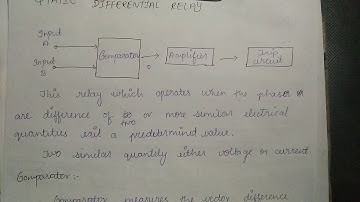 STATIC DIFFERENTIAL RELAY
Input
A
Input
B
Comparator
Amplifier
Trip
circuit
This relay which operates when the phasor
are difference of two or more similar electrical
quantities exit a predetermind value.
Two similar quantity either voltage or current.
Comparator:-
Comparator measures the vector difference